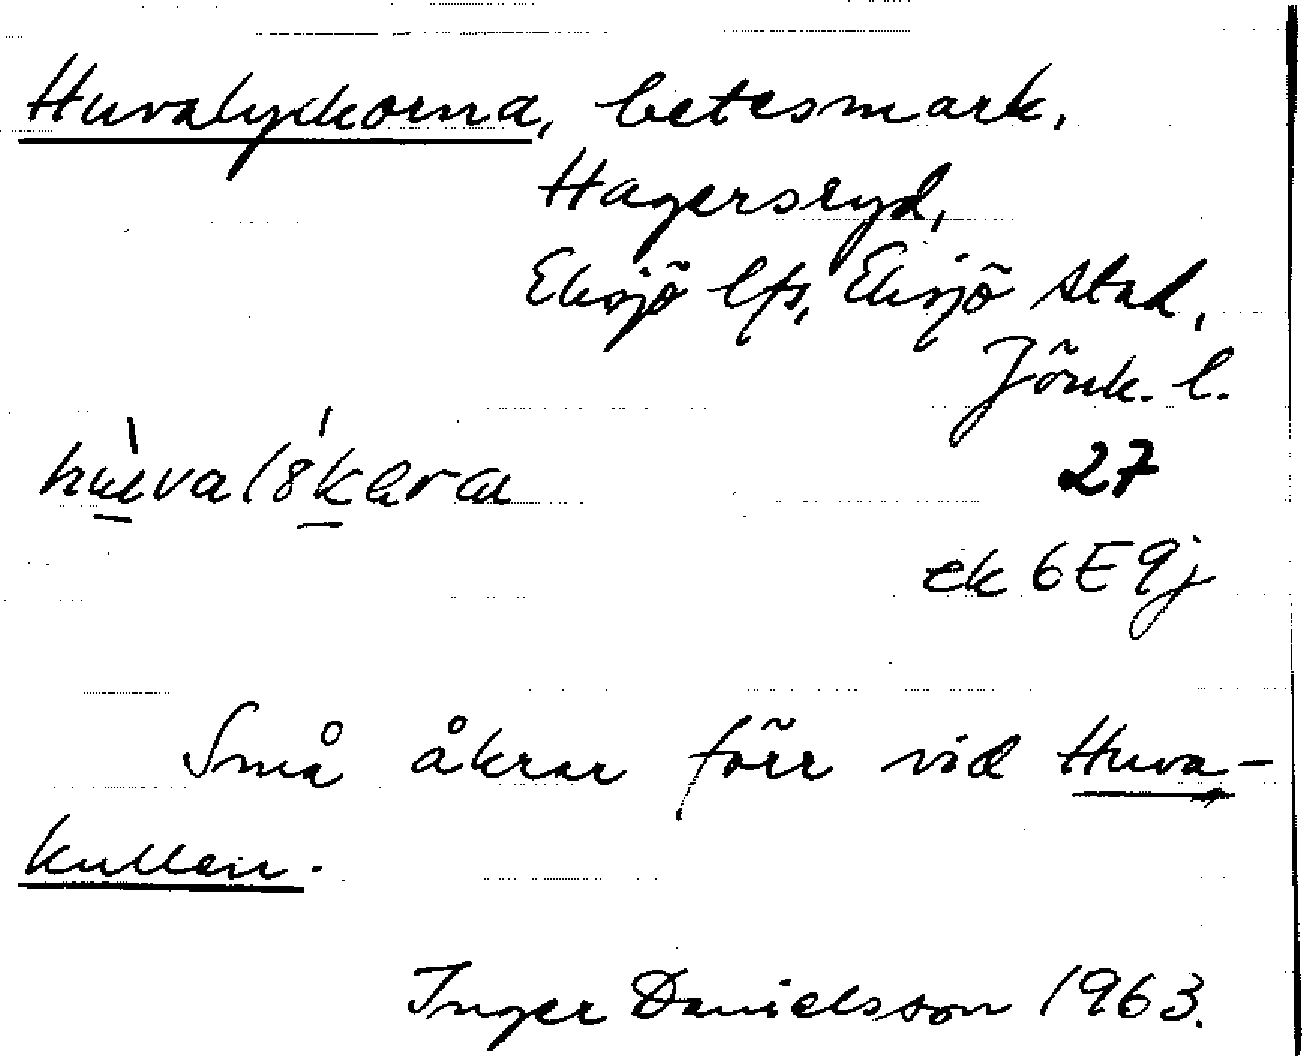 Huvalyckorna, betesmark.
Hagersryd,
Eksjö lfs, Eksjö stad,
Jönk. l.
27
ek 6E9j
Små åkrar förr vid Huva-
kullen.
Inger Danielsson 1963.